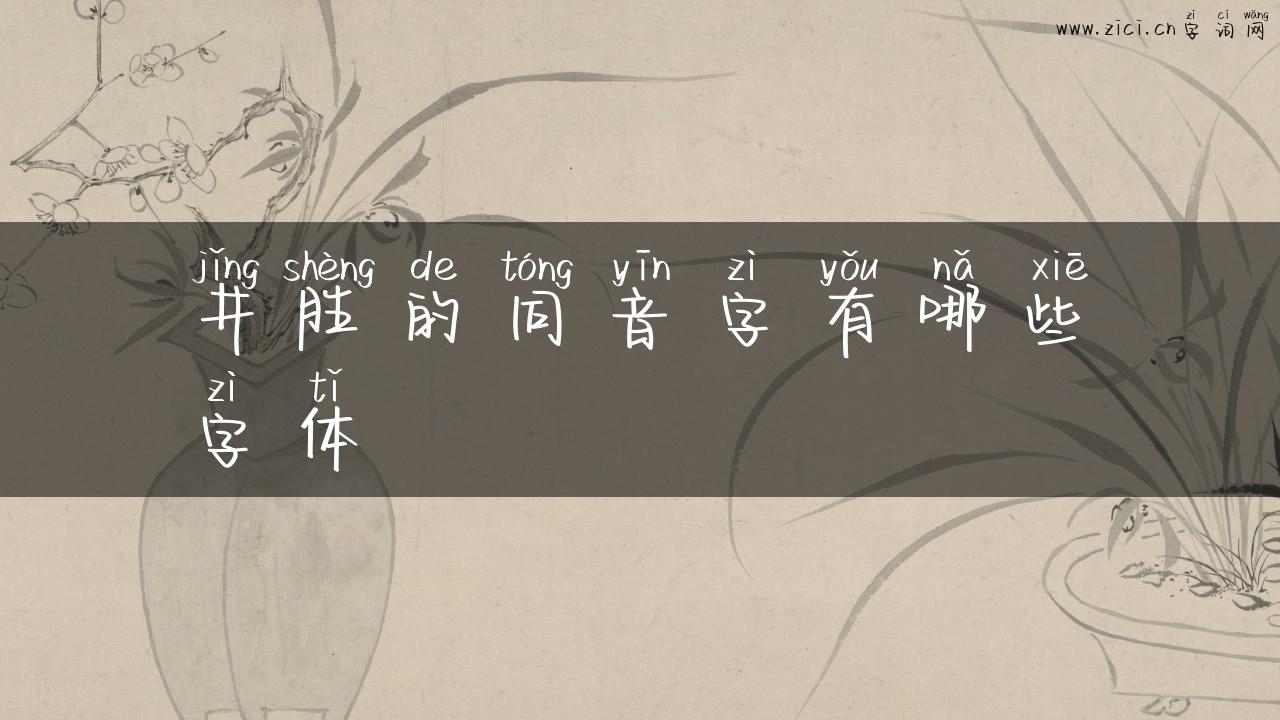 zì cí wǎng
www.zici.cn 字 词 网
jǐng shèng de tóng yīn zì yǒu nǎ xiē
井 胜 的 同 音 字 有 哪 些
zì tǐ
字 体